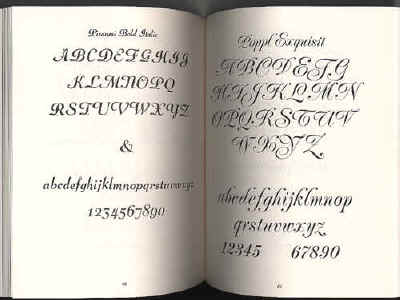 Piranesi Bold Italic
ABCDEFGHIJ
KLMNOPQ
RSTUVWXYZ
&
abcdefghijklmnopqrstuvwxyz
1234567890
Poppl Exquisit
ABCDEFG
HIJKLMN
OPQRSTUV
WXYZ
abcdefghijklmnop
qrstuvwxyz
12345 67890